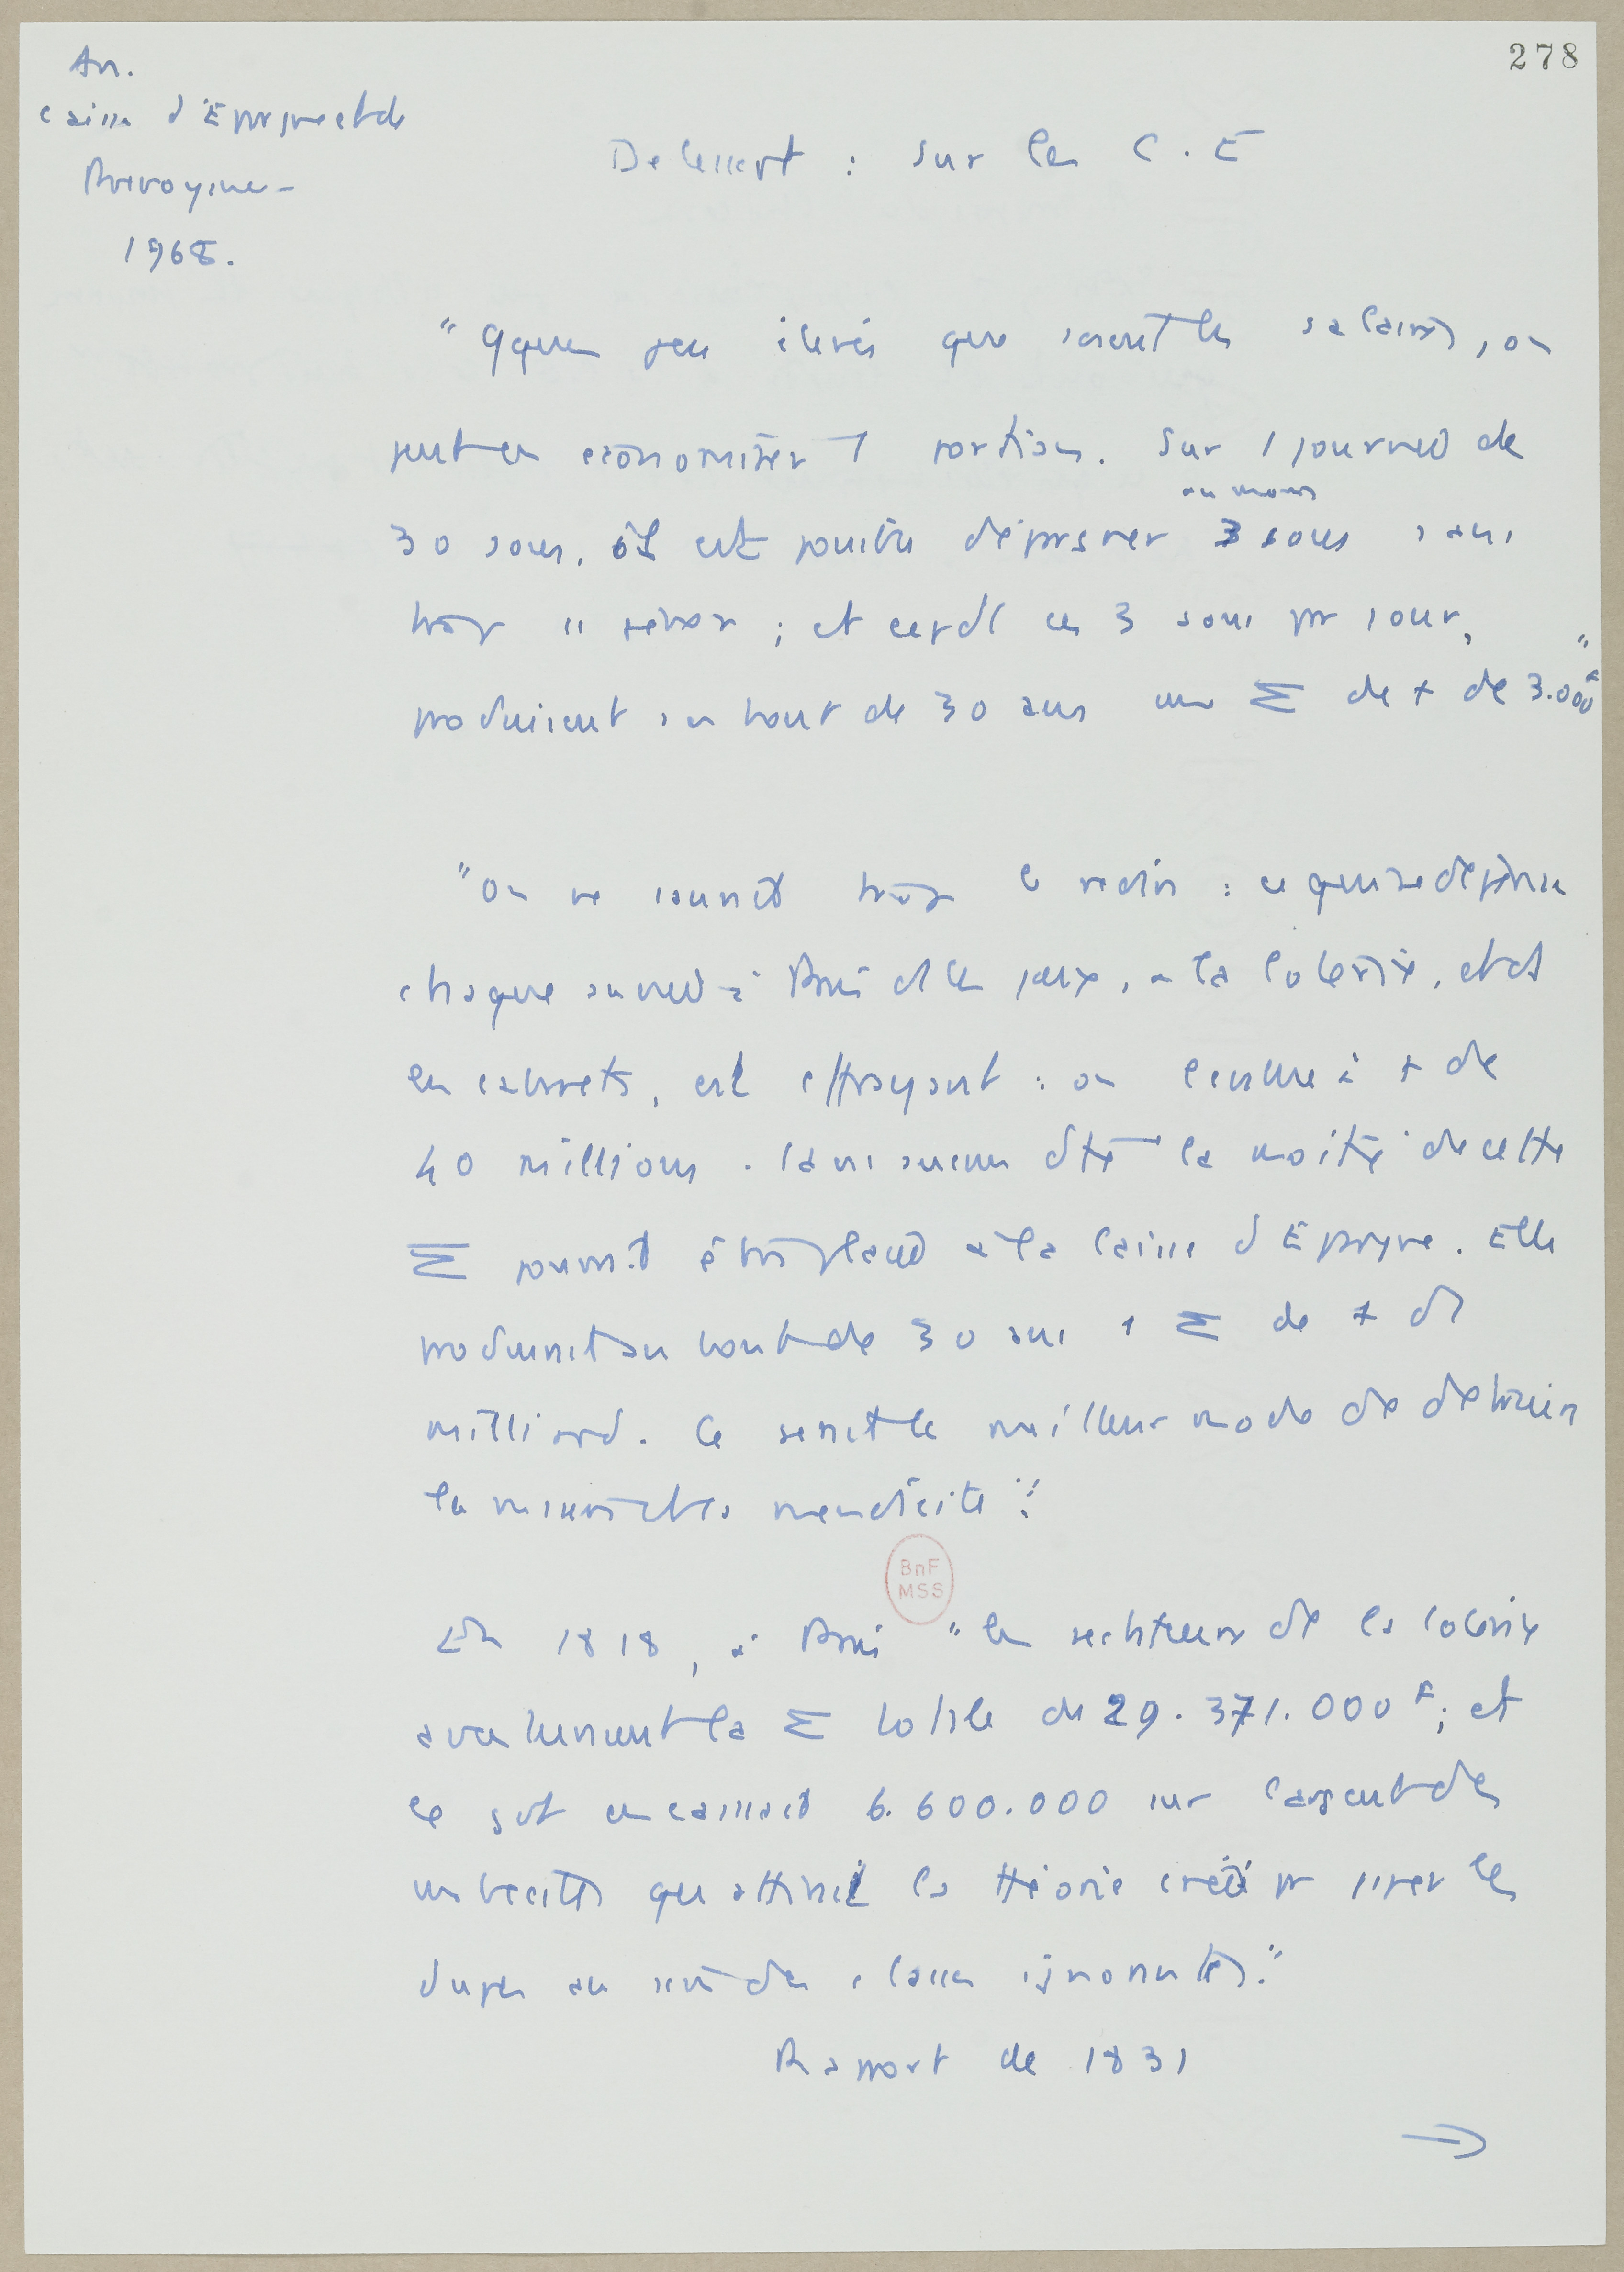 278
An.
Caisse d'Epargne et de
Prévoyance
1968.
Delessert : sur les C. E
"Qques peu élevés que soient les salaires, on
peut en économiser 1 portion. Sur 1 journée de
au moins
30 sous, il est possible d'épargner 3 sous sans
trop se gêner ; et ces 3 sous par jour,
produisent au bout de 30 ans une Σ de + de 3.000 F"
"On ne saurait trop le redire : ce qui se dépense
chaque année à Paris ds les jeux, à la loterie, et ds
les cabarets, est effrayant : on l'évalue à + de
40 millions. Sans aucun dte la moitié de cette
Σ pourrait être placée à la Caisse d'Epargne. Elle
produirait au bout de 30 ans 1 Σ de + d'1
milliard. Ce serait le meilleur mode de détruire
la misère et la mendicité".
En 1818, à Paris "les acheteurs de la loterie
aventurèrent la Σ totale de 29.371.000 F ; et
le gvt encaissait 6.600.000 sur l'argent des
imbéciles
dupes au sein des classes ignorantes."
Rapport de 1831
→
BnF
MSS